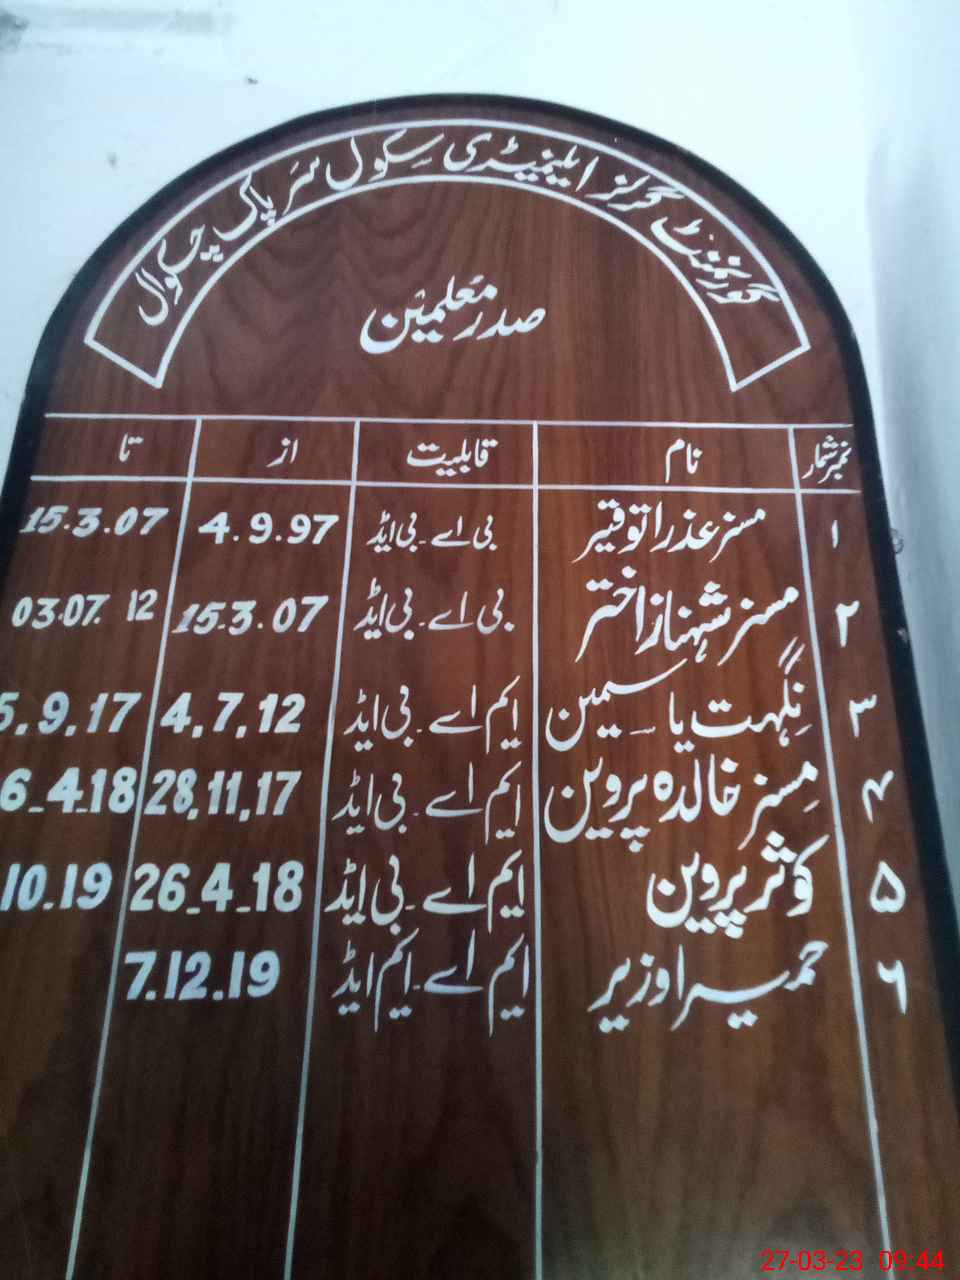 گورنمنٹ گرلز ایلیمنٹری سکول سرپاک چکوال
صدر معلمین
نمبر شمار نام قابلیت از تا
۱ مسز عذرا توقیر بی اے۔ بی ایڈ 4.9.97 15.3.07
۲ مسز شہناز اختر بی اے۔ بی ایڈ 15.3.07 03.07. 12
۳ نگہت یاسمین ایم اے۔ بی ایڈ 4,7,12 5,9.17
۴ مسز خالدہ پروین ایم اے۔ بی ایڈ 28,11,17 6-4-18
۵ کوثر پروین ایم اے۔ بی ایڈ 26-4-18 10.19
۶ حمیرا وزیر ایم اے۔ ایم ایڈ 7.12.19
27-03-23 09:44